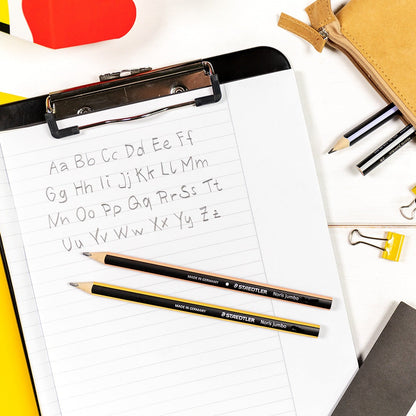 Aa Bb Cc Dd Ee Ff
Gg Hh Ii Jj Kk Ll Mm
Nn Oo Pp Qq Rr Ss Tt
Uu Vv Ww Xx Yy Zz
MADE IN GERMANY STAEDTLER Noris jumbo
MADE IN GERMANY STAEDTLER Noris jumbo